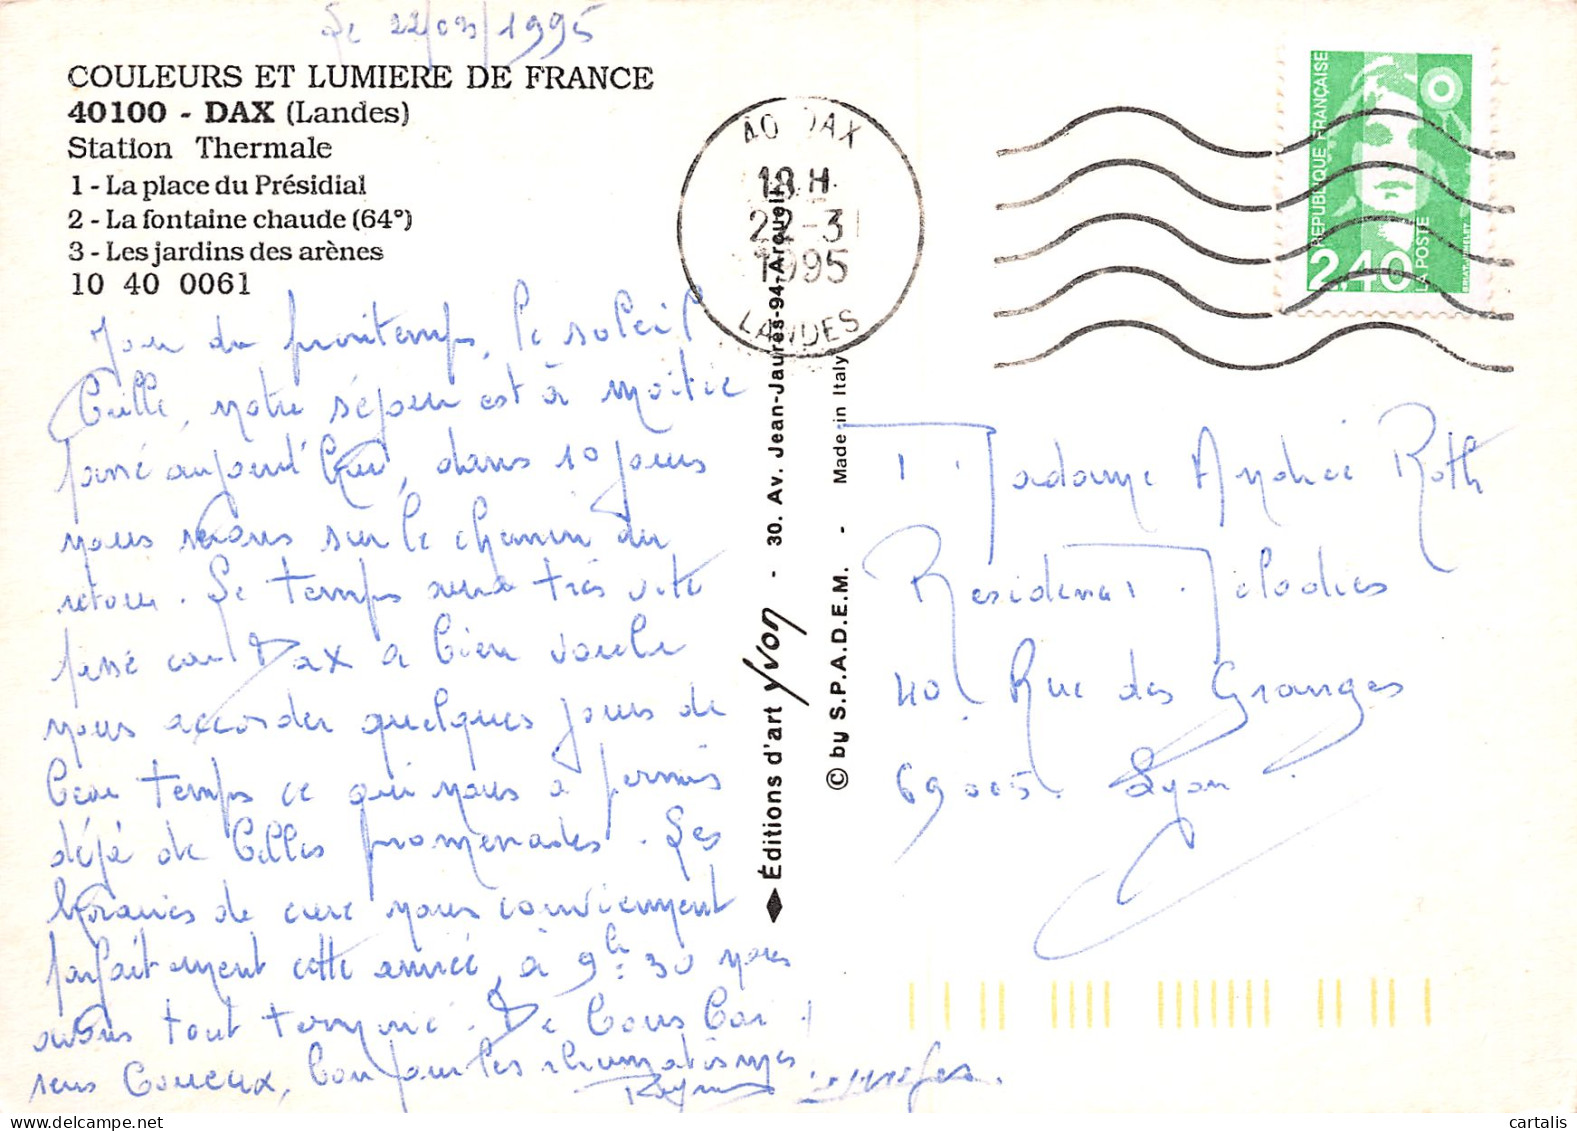 Le 22/03/1995
COULEURS ET LUMIERE DE FRANCE
40100 - DAX (Landes)
Station Thermale
1 - La place du Présidial
2 - La fontaine chaude (64°)
3 - Les jardins des arènes
10 40 0061
Jour du printemps, le soleil
brille, notre séjour est à moitié
passé aujourd'hui, dans 10 jours
nous serons sur le chemin du
retour. Le temps sera très vite
passé car Dax a bien voulu
nous accorder quelques jours de
beau temps ce qui nous a permis
déjà de belles promenades. Les
horaires de cure nous conviennent
parfaitement cette année, à 9h30 nous
avons tout terminé. De
bon pour les rhumatismes
40 DAX
18H
22-3
1995
LANDES
Éditions d'art Yvon - 30. Av. Jean-Jaurès-94-Arcueil
© by S.P.A.D.E.M. - Made in Italy
RÉPUBLIQUE FRANÇAISE
2,40
LA POSTE
Madame Andrée Roth
Residence Mélodies
40 Rue des Granges
69005 Lyon
cartalis